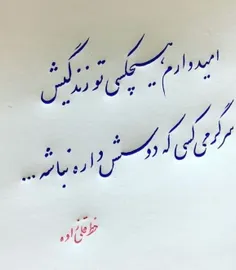 امیدوارم، هیچکسی تو زندگیش
سرگرمی کسی که دوسش داره نباشه...
خط قلی زاده